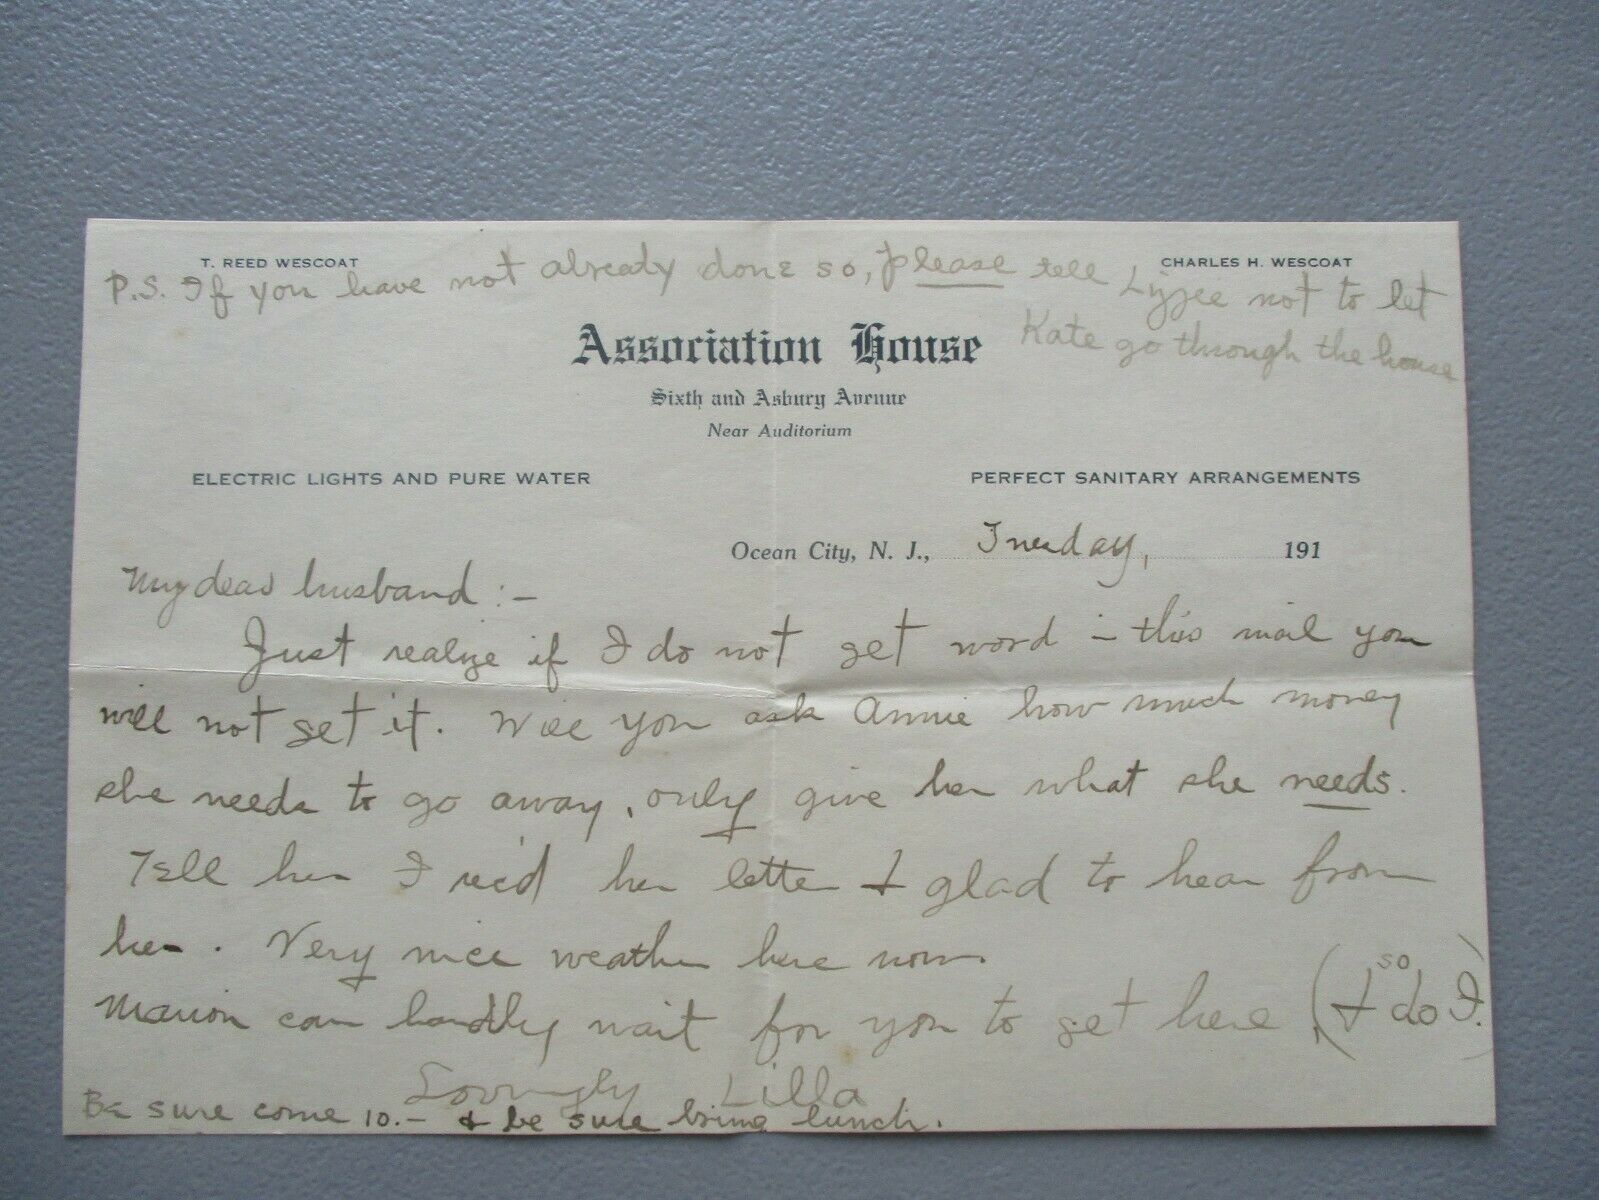 T. REED WESCOAT
CHARLES H. WESCOAT
P.S. If you have not already done so, please tell Lizzee not to let
Kate go through the house
Association House
Sixth and Asbury Avenue
Near Auditorium
ELECTRIC LIGHTS AND PURE WATER
PERFECT SANITARY ARRANGEMENTS
Ocean City, N. J., Tuesday, 191
My dear husband :-
Just realize if I do not get word in this mail you
will not get it. Will you ask Annie how much money
she needs to go away, only give her what she needs.
Tell her I rec'd her letter & glad to hear from
her. Very nice weather here now.
Marion can hardly wait for you to get here (& so do I.)
Lovingly Lilla
Be sure come 10.- & be sure bring lunch.